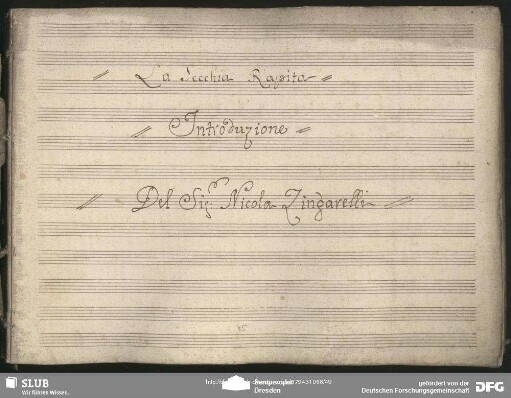 La Secchia Rapita
Introduzione
Del Sig.r Nicola Zingarelli
SLUB
Wir führen Wissen.
Dresden
gefördert von der
Deutschen Forschungsgemeinschaft
DFG